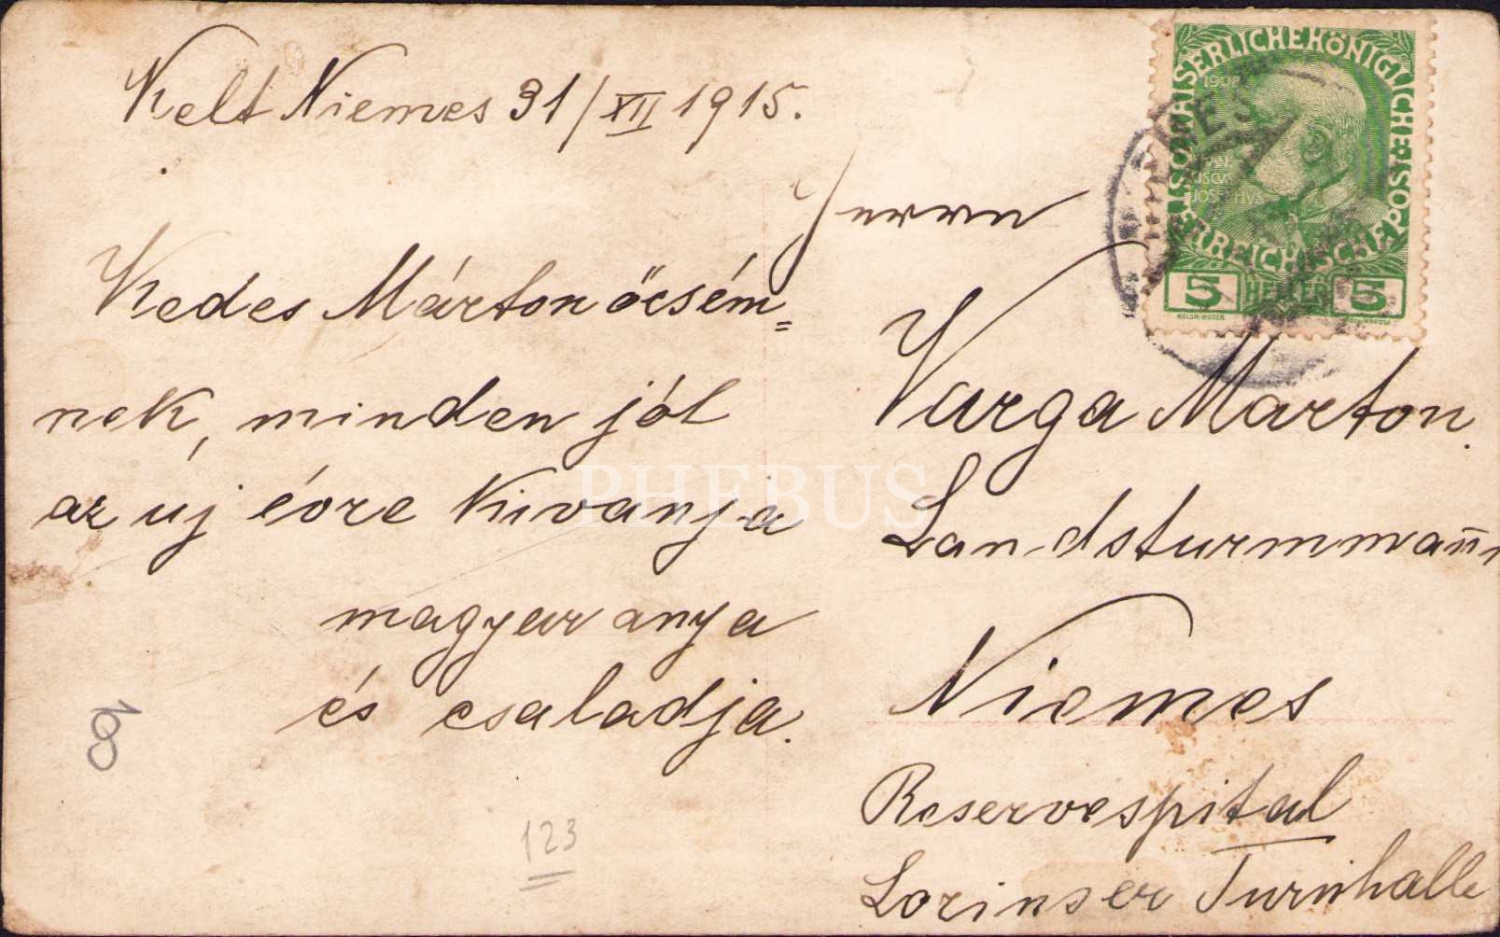 Kelt Niemes 31/XII 1915.
Kedes Márton öcsém=
nek, minden jót
az új évre Kivanja
magyar anya
és csaladja.
123
Herrn
Varga Marton.
Landsturmmann
Niemes
Reservespital
Lorinser Turnhalle
KAISERLICHEKÖNIGLICHE
ÖSTERREICHISCHEPOST
5 HELLER 5
PHEBUS